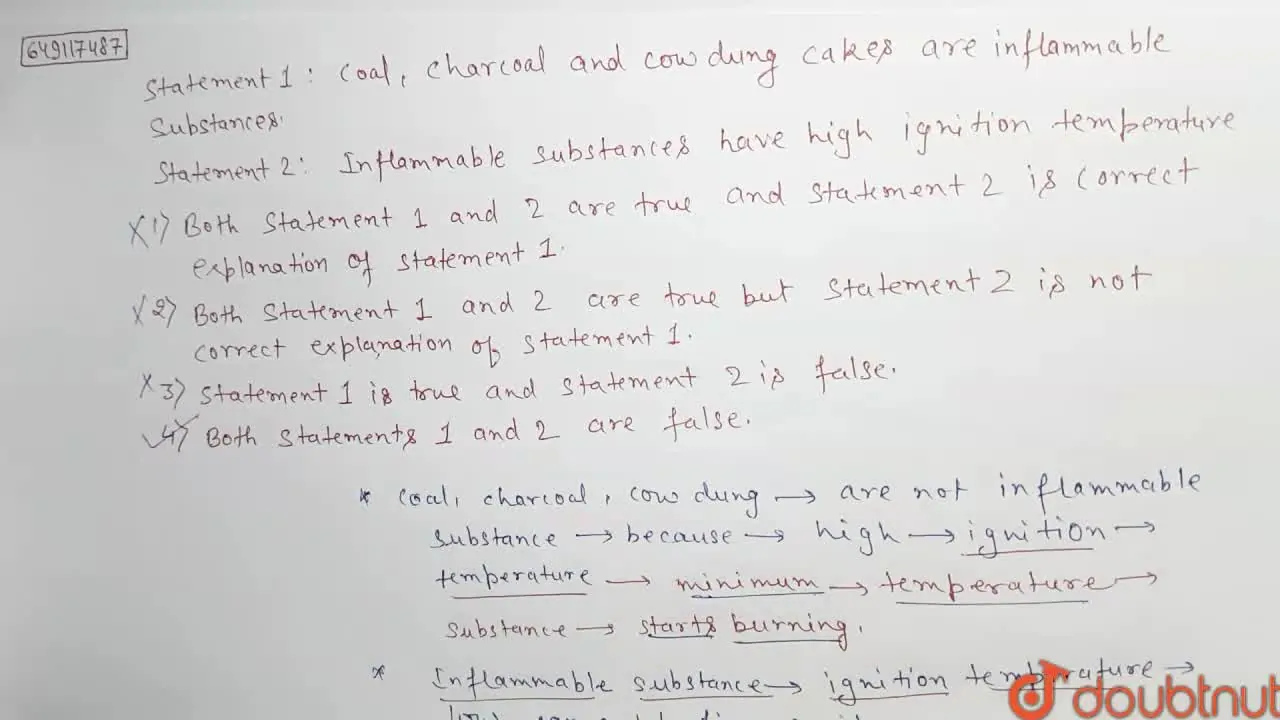 649117487
Statement 1: Coal, charcoal and cow dung cakes are inflammable
substances.
Statement 2: Inflammable substances have high ignition temperature
X 1) Both statement 1 and 2 are true and statement 2 is correct
explanation of statement 1.
X 2) Both statement 1 and 2 are true but statement 2 is not
correct explanation of statement 1.
X 3) Statement 1 is true and statement 2 is false.
✓ 4) Both statements 1 and 2 are false.
* Coal, charcoal, cow dung → are not inflammable
substance → because → high → ignition →
temperature → minimum → temperature →
substance → starts burning.
* Inflammable substance → ignition temperature →
doubtnut